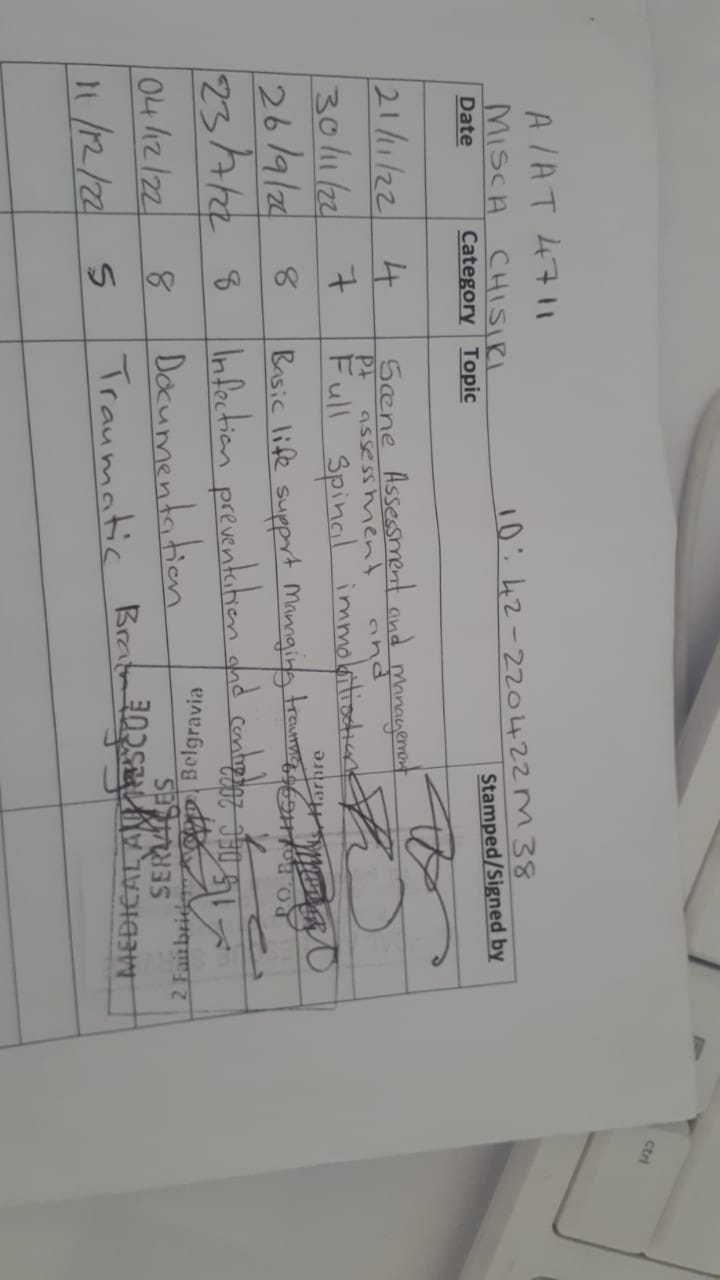 A/AT 4711
MISCA CHISIRI ID: 42-220422M38
Date Category Topic Stamped/Signed by
21/11/22 4 Scene Assessment and management
Pt assessment and
30/11/22 7 Full Spinal immobiliation
26/9/22 8 Basic life support Managing trauma
23/7/22 8 Infection preventation and control
04/12/22 8 Documentation
11/12/22 5 Traumatic Brain
MEDICAL RESCUE
SERVICES
2 Belgravia
15 DEC 2022
P.O. Box Harare
Ctrl